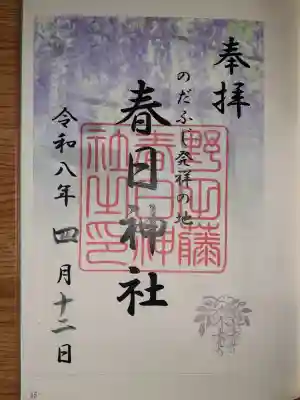 奉拝
のだふじ発祥の地
春日神社
野田藤
春日神
社之印
令和八年 四月十二日